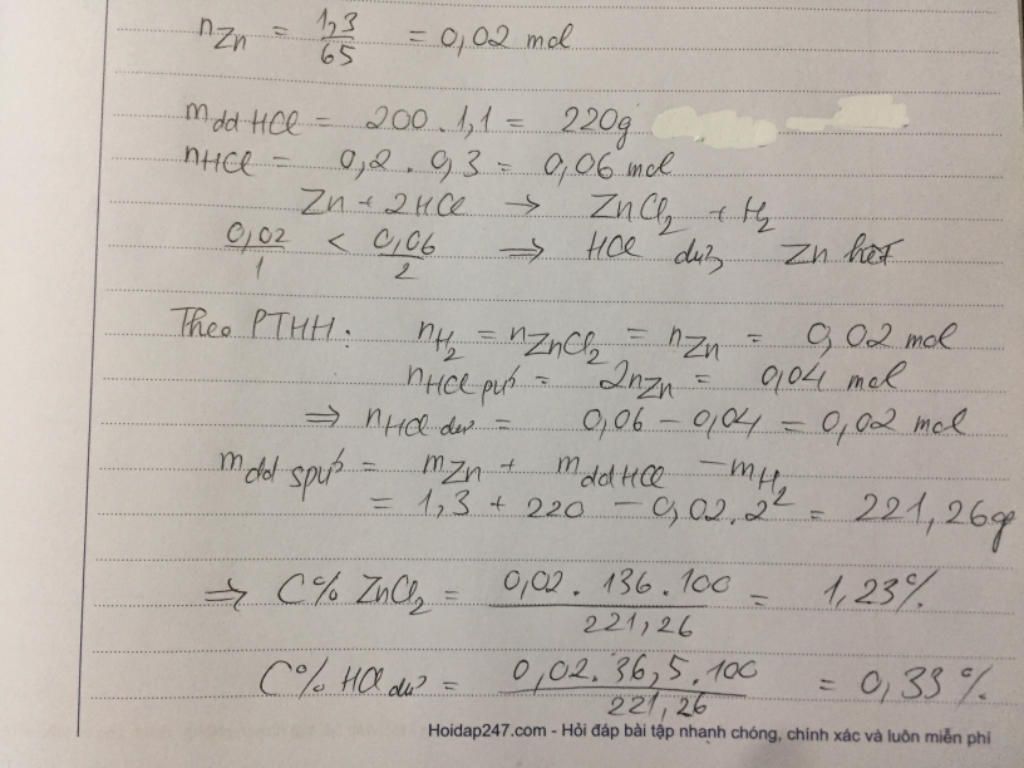 nZn = 1,3/65 = 0,02 mol
mdd HCl = 200.1,1 = 220g
nHCl = 0,2.0,3 = 0,06 mol
Zn + 2HCl → ZnCl2 + H2
0,02/1 < 0,06/2 ⇒ HCl dư, Zn hết
Theo PTHH: nH2 = nZnCl2 = nZn = 0,02 mol
nHCl pứ = 2nZn = 0,04 mol
⇒ nHCl dư = 0,06 - 0,04 = 0,02 mol
mdd spứ = mZn + mddHCl - mH2
= 1,3 + 220 - 0,02.2 = 221,26g
⇒ C% ZnCl2 = 0,02.136.100/221,26 = 1,23%
C% HCl dư = 0,02.36,5.100/221,26 = 0,33%
Hoidap247.com - Hỏi đáp bài tập nhanh chóng, chính xác và luôn miễn phí